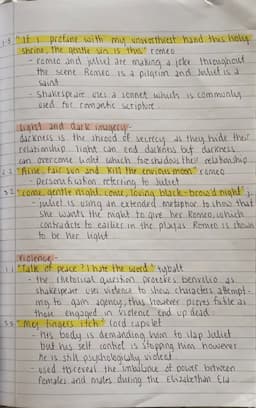 1.5 "If i profane with my unworthiest hand this holy
shrine, the gentle sin is this" romeo
- romeo and julliet are making a joke throughout
the scene Romeo is a pilgrim and Juliet is a
saint.
- Shakespeare uses a sonnet which is commonly
used for romantic scripture.
light and dark imagery:-
darkness is the shroud of secrecy as they hide their
relationship. light can end darkness but darkness
can overcome light which foreshadows their relationship.
2.2 "Arise, fair sun and kill the envious moon" romeo
- Personification referring to Juliet
3.2 "come gentle night, come, loving black-brow'd night" j.
- juliet is using an extended metaphor to show that
she wants the night to give her Romeo, which
contradicts to earlier in the play as Romeo is shown
to be her light.
violence:-
1.1 "Talk of peace? I hate the word" tybalt
- the rhetorical question provokes benvolio as
shakespeare uses violence to show characters attempt-
ing to gain agency, this however proves futile as
those engaged in violence end up dead.
3.5 "My fingers itch" lord capulet
- his body is demanding him to slap Juliet
but his self control is stopping him however
he is still psychologically violent
- used to reveal the imbalance of power between
females and males during the Elizabethan Era